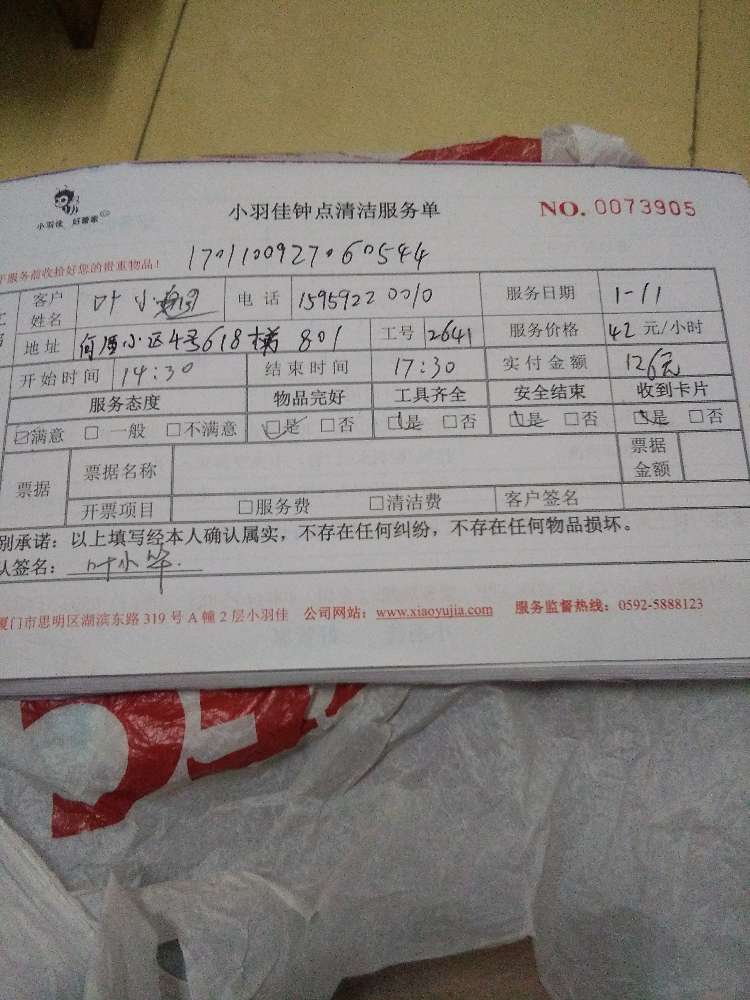 小羽佳 好管家
小羽佳钟点清洁服务单
NO. 0073905
服务前收拾好您的贵重物品!
1701100927060544
客户姓名 叶小 电话 15959220010 服务日期 1-11
地址 何厝小区4号618梯 801 工号 2641 服务价格 42 元/小时
开始时间 14:30 结束时间 17:30 实付金额 126元
服务态度 物品完好 工具齐全 安全结束 收到卡片
☑满意 □一般 □不满意 ☑是 □否 ☑是 □否 ☑是 □否 ☑是 □否
票据 票据名称 票据金额
开票项目 □服务费 □清洁费 客户签名
别承诺:以上填写经本人确认属实,不存在任何纠纷,不存在任何物品损坏。
认签名: 叶小华
厦门市思明区湖滨东路 319 号 A 幢 2 层小羽佳 公司网站:www.xiaoyujia.com 服务监督热线:0592-5888123